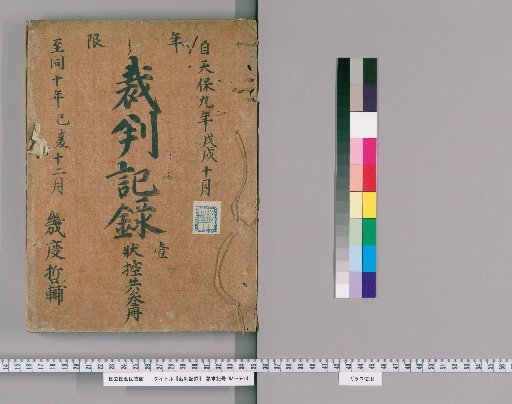 年限
自天保九年戊戌十月
裁判記録
壹
状控共叄冊
至同十年己亥十二月
幾度哲輔